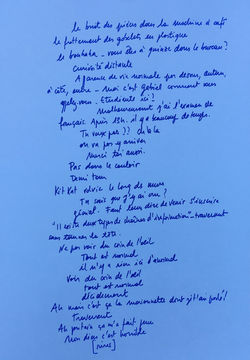 le bruit des pièces dans la machine à café
le frottement des gobelets en plastique
le brouhaha - vous êtes à quinze dans le bureau ?
curiosité distante
Apparence de vie normale par dessus, autour,
à côté, entre - moi c'est Gabriel comment vous
appelez-vous. Etudiante ici ?
Malheureusement j'ai l'examen de
français. Après 15h. il y a beaucoup de temps.
Tu veux pas ?? oh la
on va pas y arriver
Merci toi aussi.
Pas dans le couloir
Demi tour
Kit Kat le long des murs
Tu sais que j'y ai
génial. Faut leur dire de venir s'inscrire
"Il existe deux types de chaînes d'information" - traversant
sans tourner la tête.
Ne pas voir du coin de l'œil
Tout est normal
il n'y a rien ici d'anormal
Voir du coin de l'œil
tout est normal
décidément
Ah mais c'est ça la marionnette dont je t'ai parlé !
Traversent
Ah putain ça m'a fait peur
Mon dieu c'est horrible
[rires]